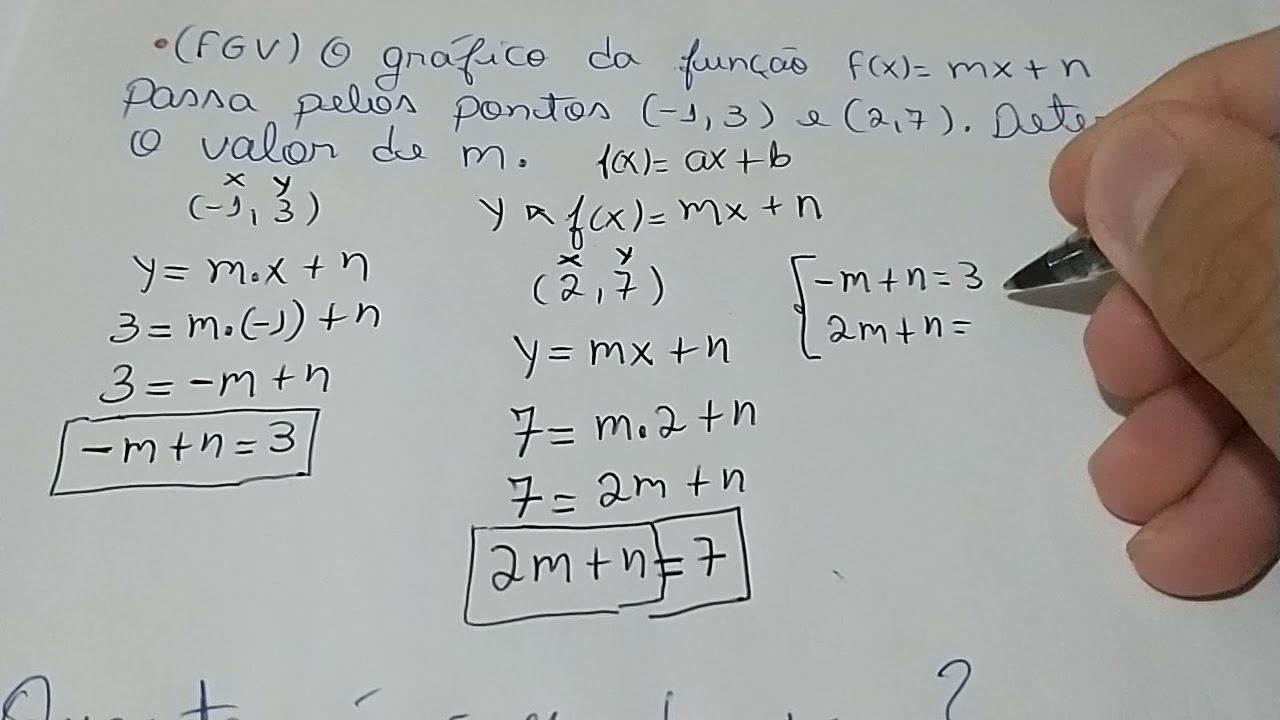 •(FGV) O gráfico da função f(x)= mx + n
Passa pelos pontos (-1,3) e (2,7). Dete
O valor de m. f(x)= ax + b
x y
(-1, 3)
y = m.x + n
3 = m.(-1) + n
3 = -m + n
-m + n = 3
y f(x)= mx + n
x y
(2, 7)
y = mx + n
7 = m.2 + n
7 = 2m + n
2m + n = 7
-m + n = 3
2m + n =
?